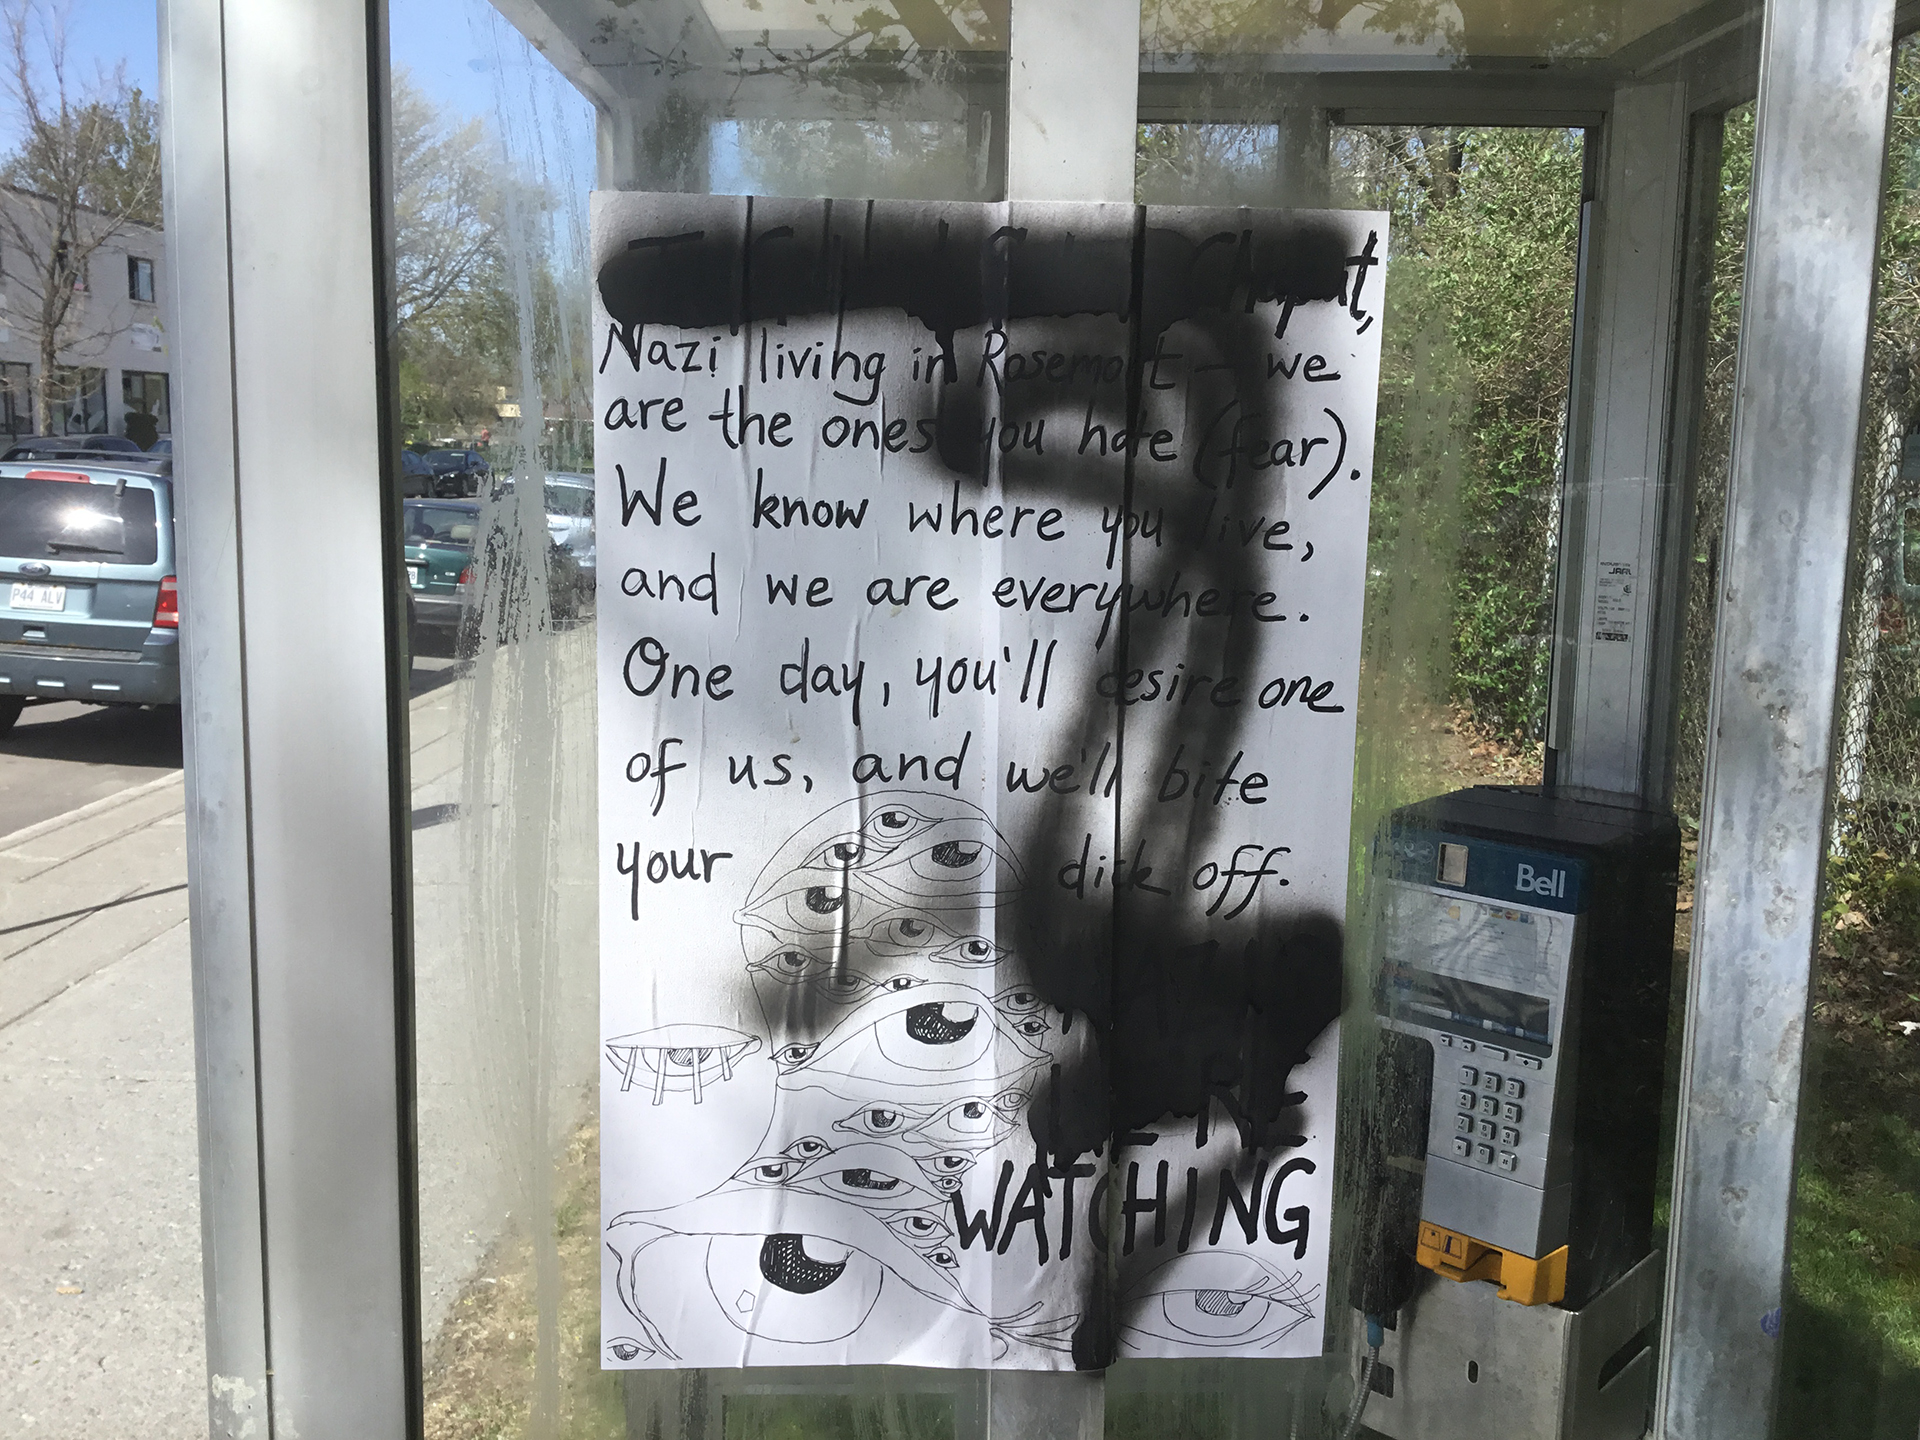 Nazi living in Rosemont - we
are the ones you hate (fear).
We know where you live,
and we are everywhere.
One day, you'll desire one
of us, and we'll bite
your dick off.
WE'RE
WATCHING
Bell
P44 ALV